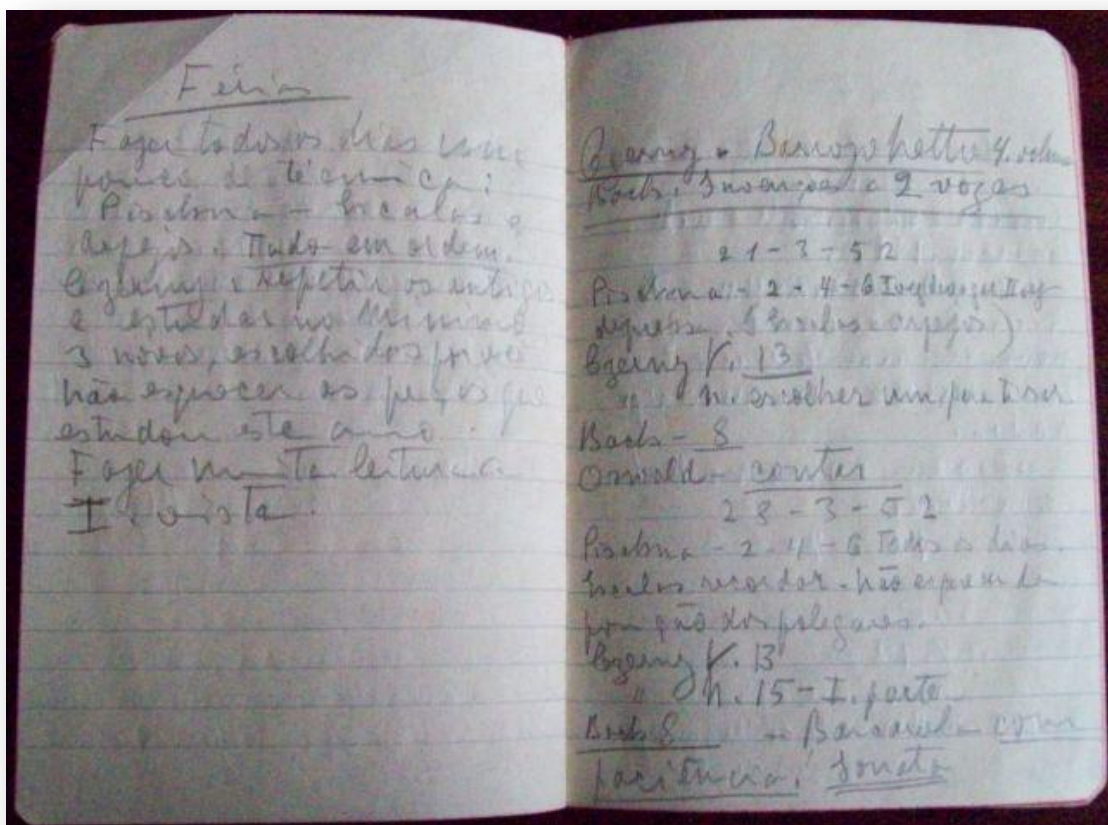 Férias
Fazer todos os dias um
pouco de técnica:
Pischna - Escalas e
Arpejs. Tudo em ordem.
Czerny: repetir os antigos
e estudar no mínimo
3 novos, escolhidos por
não esquecer as peças que
estudou este ano.
Fazer muita leitura a
I. vista.
Czerny - Barrozo Netto 4.
Bach. Invenções a 2 vozes
21-3-52
Pischna - 2-4-6 I
(Escalas arpejos)
Czerny n. 13
" n. escolher um
Bach - 8
Oswald - contar
28-3-52
Pischna - 2-4-6 Todos os dias.
Escalas recordar. Não
dos polegares.
Czerny n. 13
" n. 15 - I. parte
Bach 8 - Barcarola com
paciência. Sonata